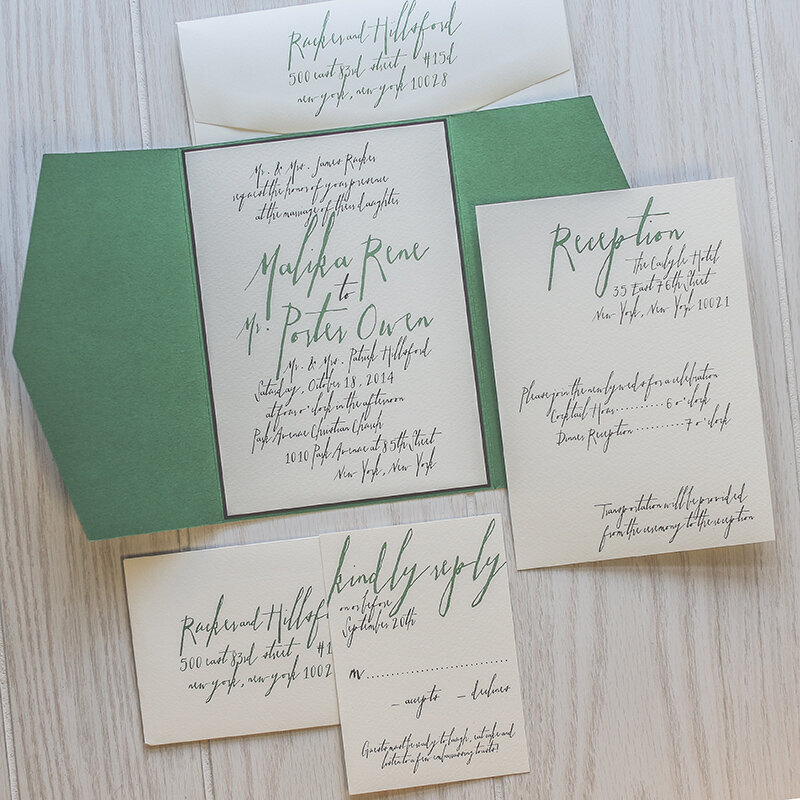 Racker and Hillsford
500 east 83rd street #15d
new york, new york 10028
Mr. & Mrs. James Racker
request the honor of your presence
at the marriage of their daughter
Malika Rene
to
Mr. Porter Owen
Mr. & Mrs. Patrick Hillsford
Saturday, October 18, 2014
at four o'clock in the afternoon
Park Avenue Christian Church
1010 Park Avenue at 85th Street
New York, New York
Reception
The Carlyle Hotel
35 East 76th Street
New York, New York 10021
Please join the newlyweds for a celebration
Cocktail Hour..........6 o'clock
Dinner Reception..........7 o'clock
Transportation will be provided
from the ceremony to the reception
Racker and Hillsf
500 east 83rd street #1
new york, new york 10028
kindly reply
on or before
September 20th
m
_ accepts _ declines
Guests must be ready to laugh, eat cake and
listen to a few embarrassing toasts!